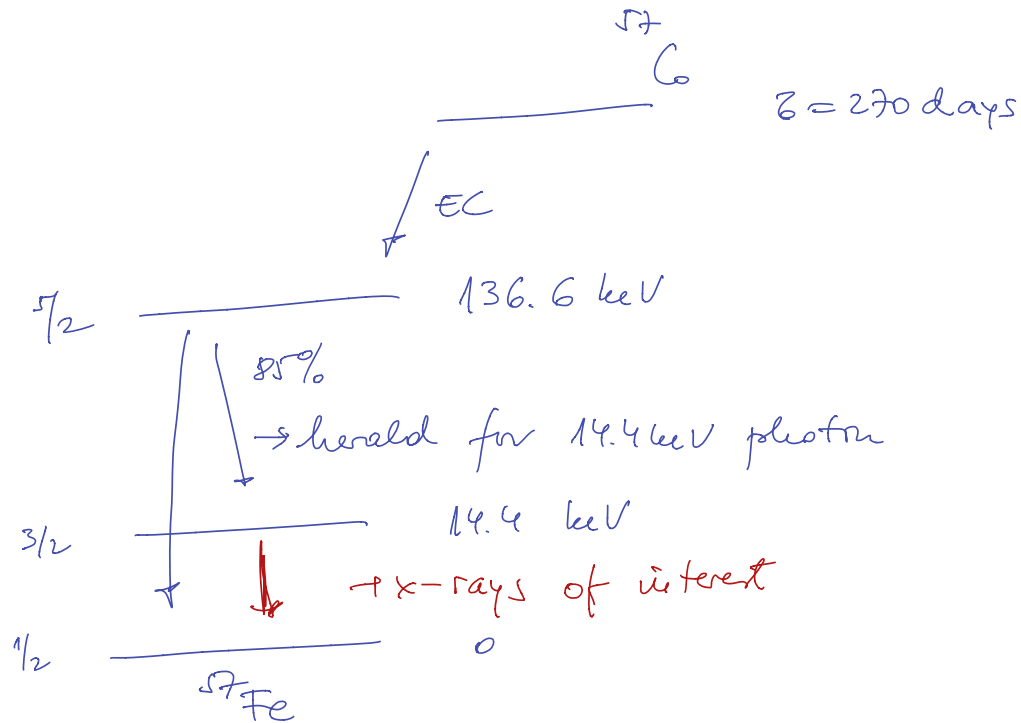 ⁵⁷Co
τ = 270 days
EC
5/2 136.6 keV
85%
→ herald for 14.4 keV photon
3/2 14.4 keV
→ x-rays of interest
1/2 0
⁵⁷Fe